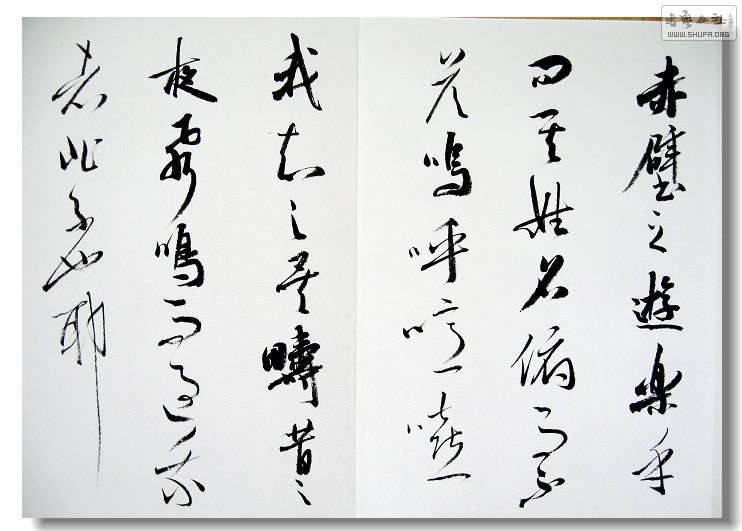 赤壁之遊樂乎
问其姓名俯而不
答嗚呼噫嘻
我知之矣疇昔之
夜飛鳴而過我
者非子也耶
书艺公社
WWW.SHUFA.ORG